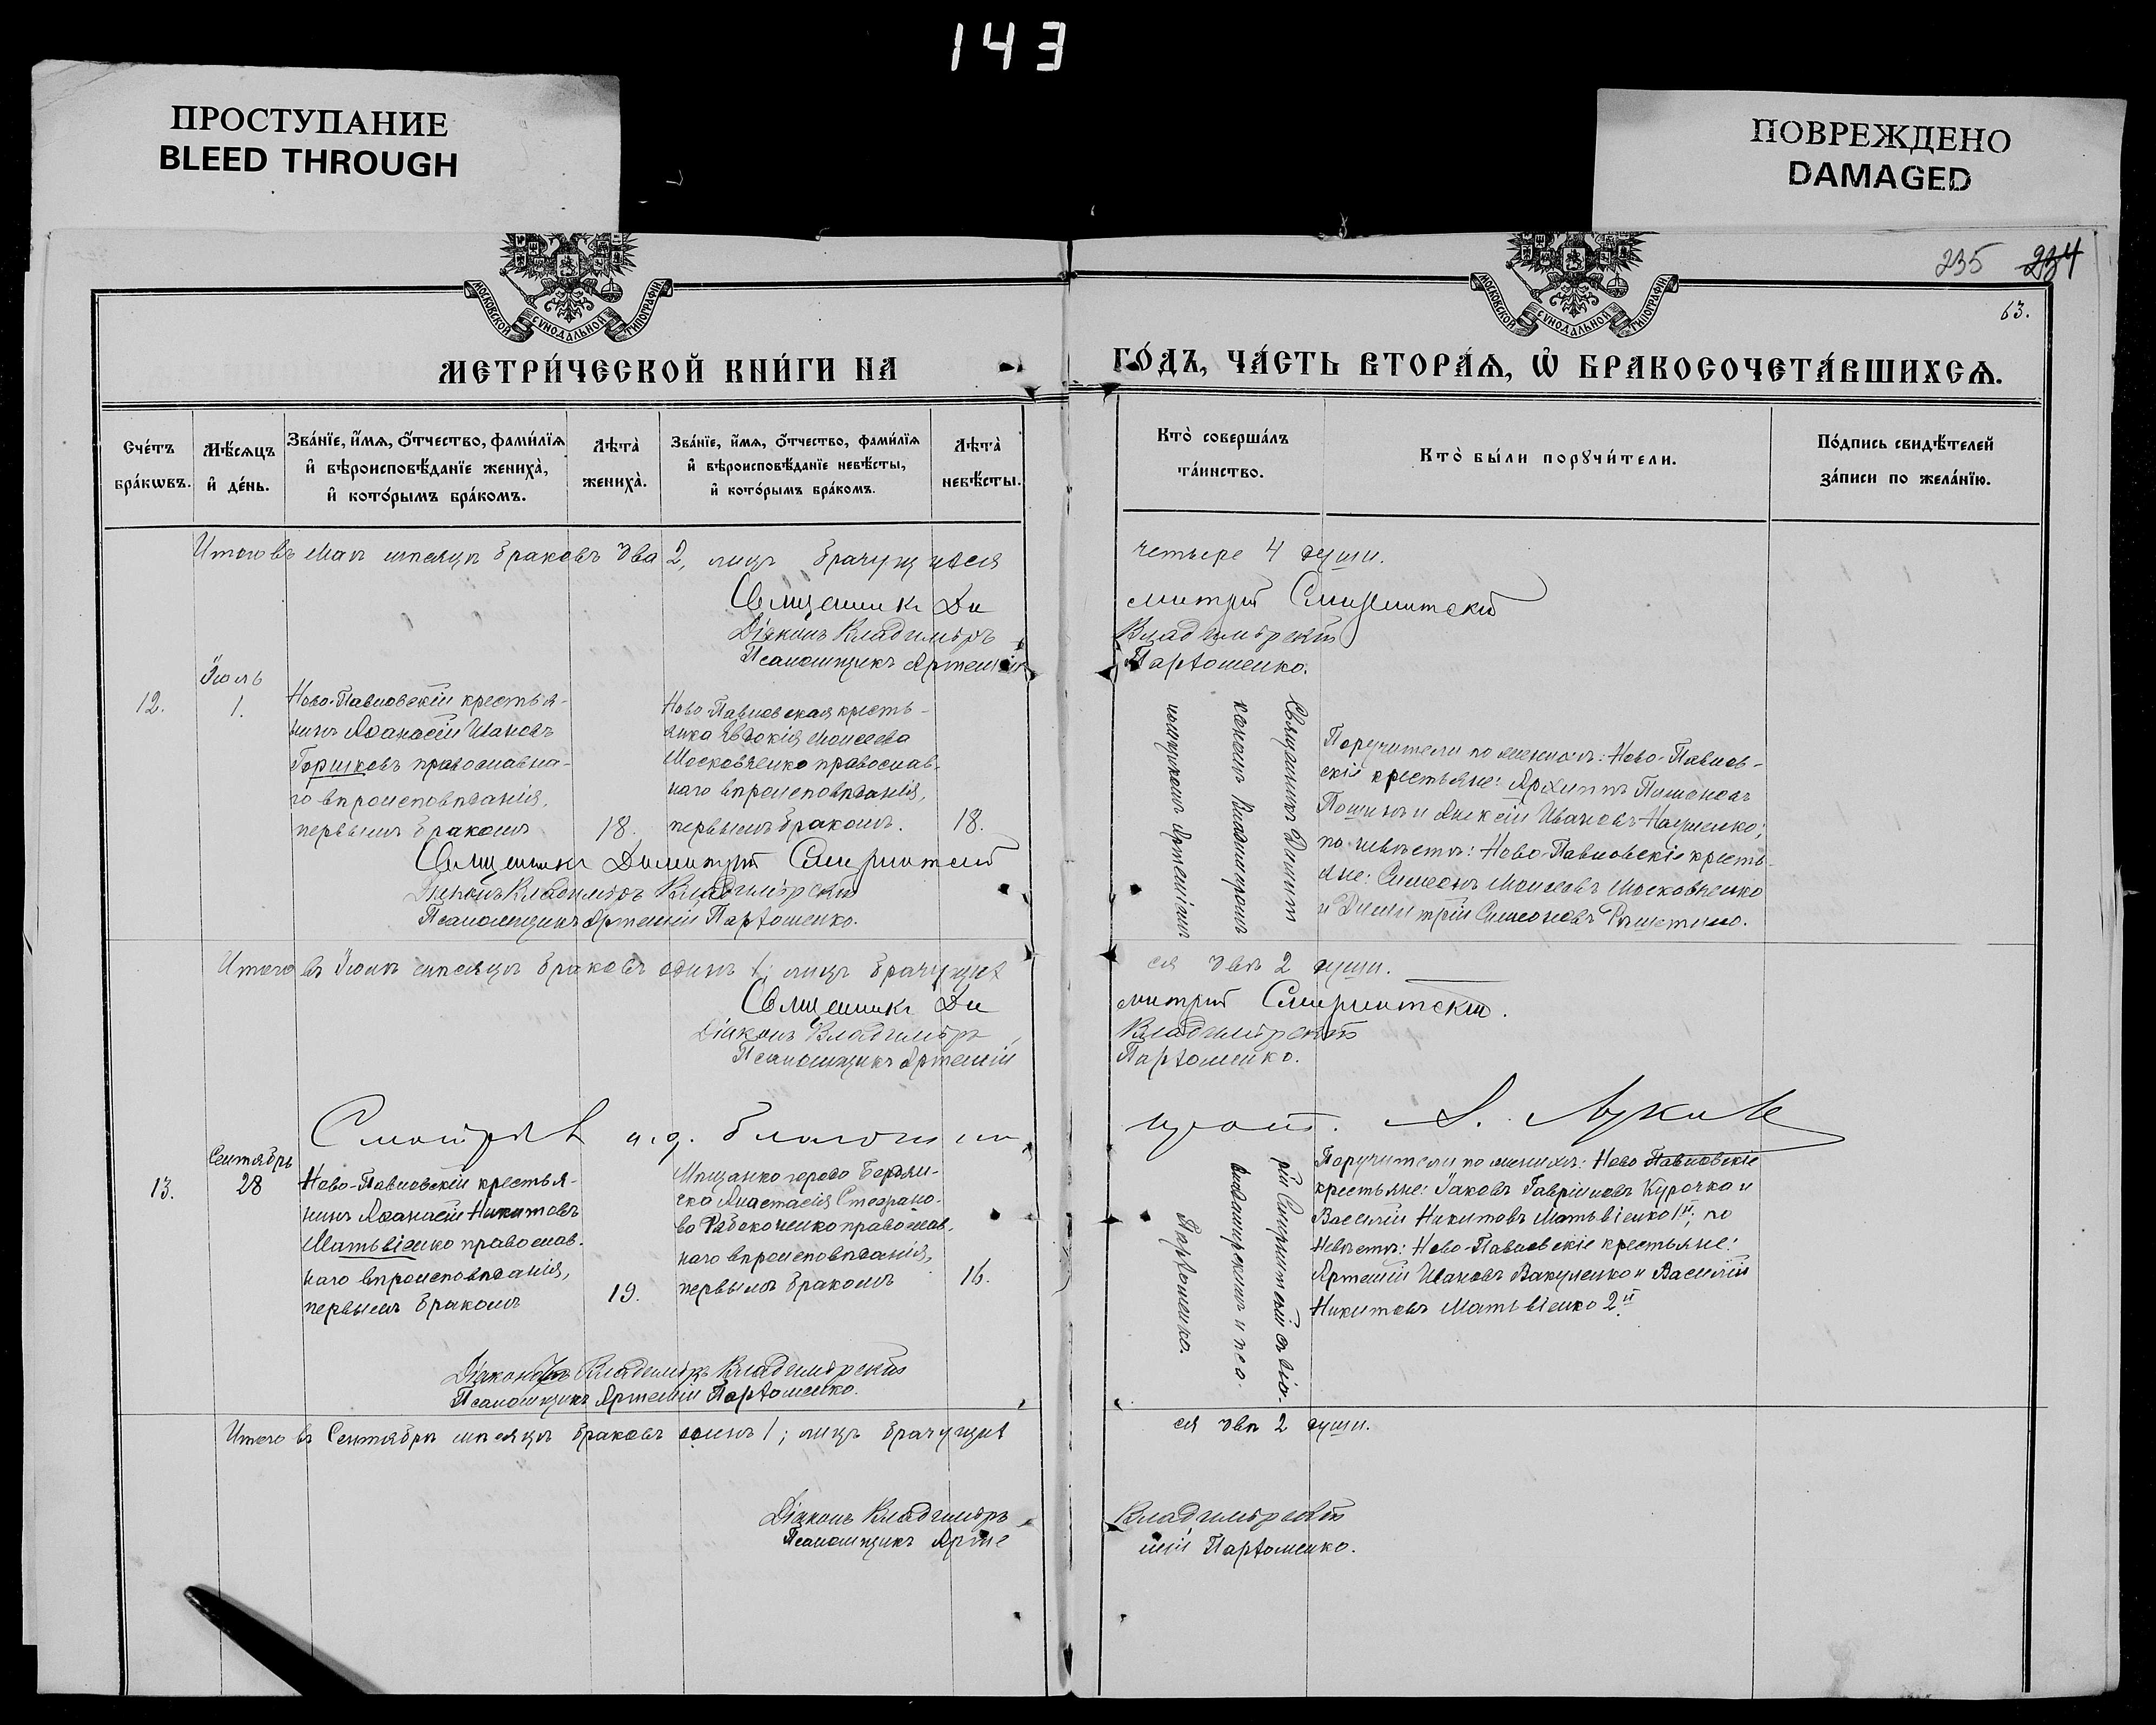 143
ПРОСТУПАНИЕ
BLEED THROUGH
ПОВРЕЖДЕНО
DAMAGED
МОСКОВСКОЙ СѴНОДАЛЬНОЙ ТИПОГРАФІИ
МОСКОВСКОЙ СѴНОДАЛЬНОЙ ТИПОГРАФІИ
235 234
63.
МЕТРИ́ЧЕСКОЙ КНИ́ГИ НА
ГО́ДЪ, ЧА́СТЬ ВТОРА́Ѧ, Ѿ БРАКОСОЧЕТА́ВШИХСѦ.
Сче́тъ
бра́кѡвъ.
Мѣ́сяцъ
и҆ де́нь.
Зва́нїе, и҆́мѧ, ѻ҆́тчество, фами́лїѧ
и҆ вѣроисповѣ́данїе жениха̀,
и҆ кото́рымъ бра́комъ.
Лѣта̀
жениха̀.
Зва́нїе, и҆́мѧ, ѻ҆́тчество, фами́лїѧ
и҆ вѣроисповѣ́данїе невѣ́сты,
и҆ кото́рымъ бра́комъ.
Лѣта̀
невѣ́сты.
Кто̀ соверша́лъ
та́инство.
Кто̀ бы́ли порꙋчи́тели.
По́дпись свидѣ́телей
за́писи по жела́нїю.
Итого въ Маѣ мѣсяцѣ браковъ два 2, лицъ брачущихся
четыре 4 души.
Священникъ Ди
митрій Смирнитскій
Діаконъ Владиміръ
Владимірскій
Псаломщикъ Артемій
Пархоменко.
Іюль
12.
1.
Ново-Павловскій крестья-
нинъ Аѳанасій Ивановъ
Горшковъ православна-
го вѣроисповѣданія,
первымъ бракомъ
18.
Ново-Павловская кресть-
янка Евдокія Моисеева
Московченко православ-
наго вѣроисповѣданія,
первымъ бракомъ.
18.
Священникъ Димит
кономъ Владиміромъ
ломщикомъ Артеміемъ
Поручители по женихѣ: Ново-Павлов-
скіе крестьяне: Архиппъ
и Алексій Ивановъ Науменко;
по невѣстѣ: Ново-Павловскіе кресть-
яне: Симеонъ Моисеевъ Московченко
и Димитрій Симеоновъ
Священникъ Димитрій Смирнитскій
Діаконъ Владиміръ Владимірскій
Псаломщикъ Артемій Пархоменко.
Итого въ Іюлѣ мѣсяцѣ браковъ одинъ 1; лицъ брачущих
ся двѣ 2 души.
Священникъ Ди
митрій Смирнитскій.
Діаконъ Владиміръ
Владимірскій
Псаломщикъ Артемій
Пархоменко.
и. д.
А.
Сентябрь
13.
28
Ново-Павловскій крестья-
нинъ Аѳанасій Никитовъ
Матьвіенко православ-
наго вѣроисповѣданія,
первымъ бракомъ
19.
Мѣщанка города Бердян-
ска Анастасія Стефано-
ва Рябоконенко православ-
наго вѣроисповѣданія,
первымъ бракомъ
16.
рій Смирнитскій съ діа-
Владимірскимъ и пса-
Пархоменко.
Поручители по женихѣ: Ново-Павловскіе
крестьяне: Іаковъ Гавріиловъ Курочка и
Василій Никитовъ Матьвіенко 1й; по
невѣстѣ: Ново-Павловскіе крестьяне:
Артемій Ивановъ Вакуленко и Василій
Никитовъ Матьвіенко 2й
Діаконъ Владиміръ Владимірскій
Псаломщикъ Артемій Пархоменко.
Итого въ Сентябрѣ мѣсяцѣ браковъ одинъ 1; лицъ брачущих
ся двѣ 2 души.
Діаконъ Владиміръ
Владимірскій
Псаломщикъ Арте
мій Пархоменко.